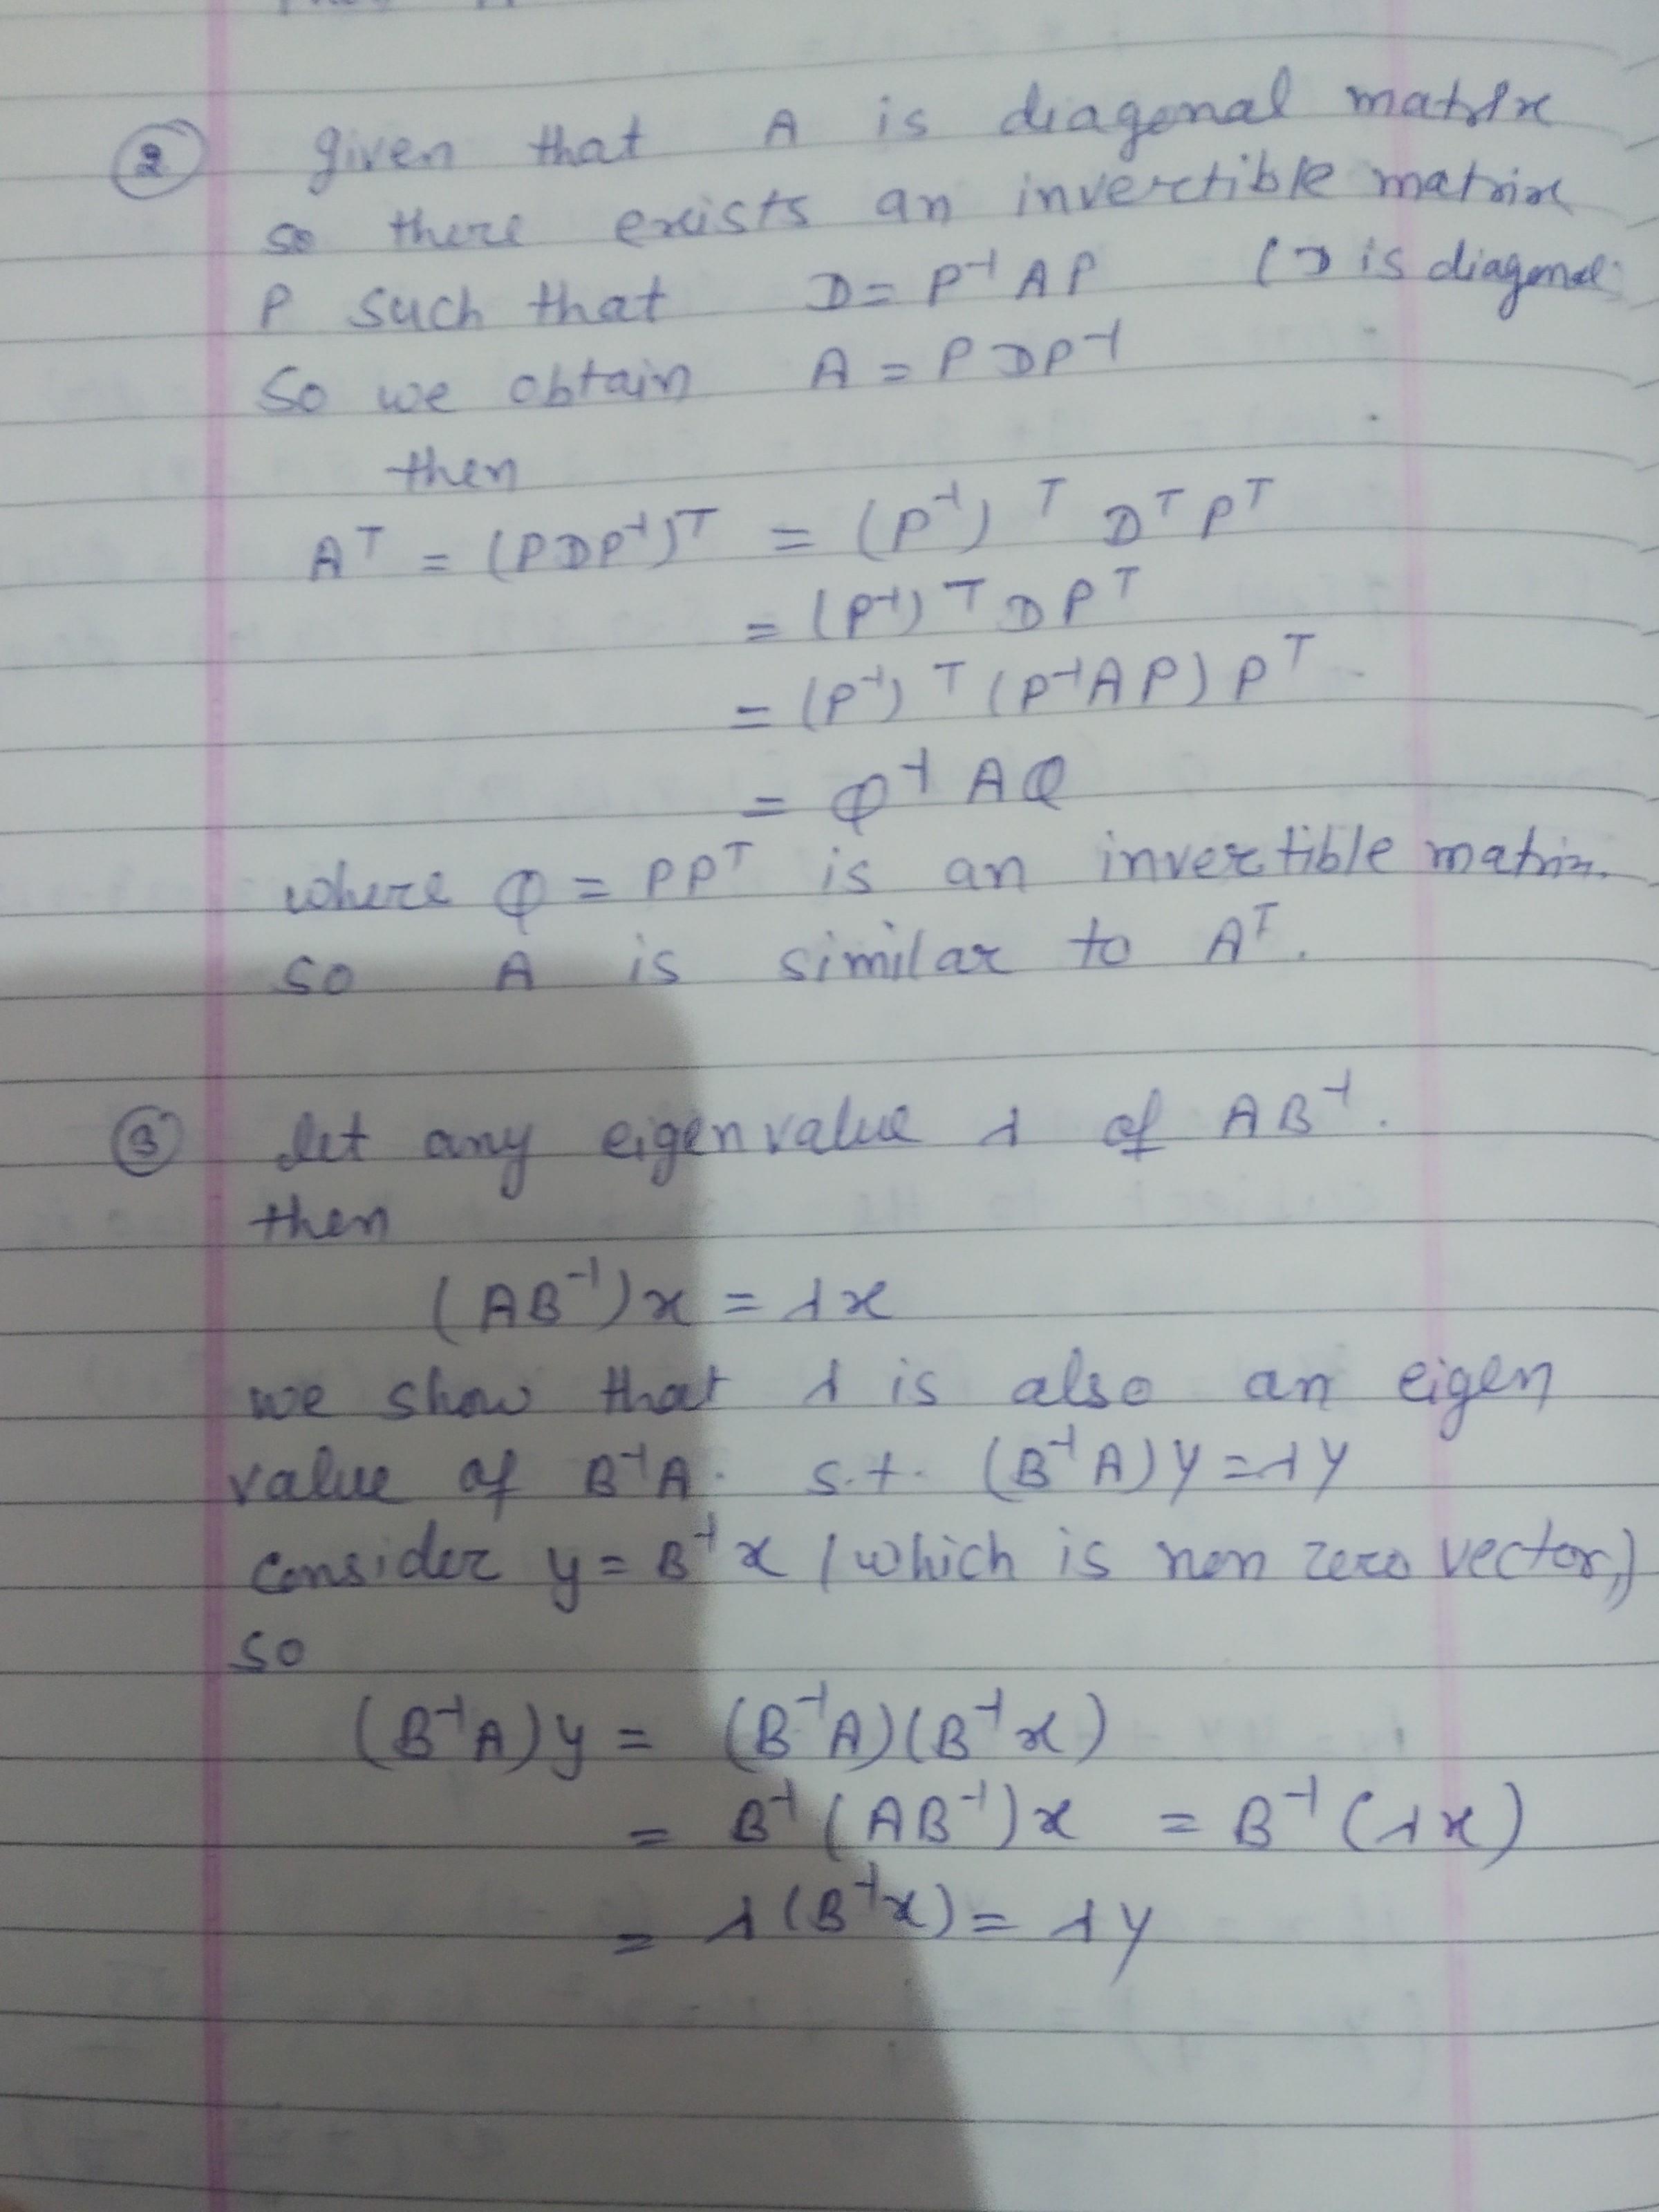 ② given that A is diagonal matrix
so there exists an invertible matrix
P such that D = P⁻¹ A P (D is diagonal
So we obtain A = P D P⁻¹
then
Aᵀ = (P D P⁻¹)ᵀ = (P⁻¹)ᵀ Dᵀ Pᵀ
= (P⁻¹)ᵀ D Pᵀ
= (P⁻¹)ᵀ (P⁻¹ A P) Pᵀ
= Q⁻¹ A Q
where Q = P Pᵀ is an invertible matrix.
so A is similar to Aᵀ.
③ let any eigenvalue λ of AB⁻¹.
then
(AB⁻¹)x = λx
we show that λ is also an eigen
value of B⁻¹A. s.t. (B⁻¹A)y = λy
consider y = B⁻¹x (which is non zero vector,)
so
(B⁻¹A)y = (B⁻¹A)(B⁻¹x)
= B⁻¹(AB⁻¹)x = B⁻¹(λx)
= λ(B⁻¹x) = λy